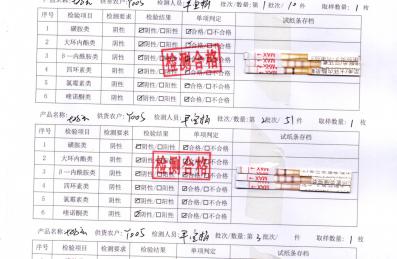 供货农户: Y005 检测人员: 批次/数量: 第1批次/10件 取样数量: 1 枚
序号 检验项目 检测要求 检验结果 单项判定 试纸条存档
1 磺胺类 阴性 ☑阴性/□阳性 ☑合格/□不合格
2 大环内酯类 阴性 ☑阴性/□阳性 ☑合格/□不合格
3 β—内酰胺类 阴性 ☑阴性/□阳性 ☑合格/□不合格
4 四环素类 阴性 ☑阴性/□阳性 ☑合格/□不合格
5 氯霉素类 阴性 ☑阴性/□阳性 ☑合格/□不合格
6 喹诺酮类 阴性 ☑阴性/□阳性 ☑合格/□不合格
检测合格
MAX
产品名称: 供货农户: Y005 检测人员: 批次/数量: 第2批次/51件 取样数量: 1 枚
序号 检验项目 检测要求 检验结果 单项判定 试纸条存档
1 磺胺类 阴性 ☑阴性/□阳性 ☑合格/□不合格
2 大环内酯类 阴性 ☑阴性/□阳性 ☑合格/□不合格
3 β—内酰胺类 阴性 ☑阴性/□阳性 ☑合格/□不合格
4 四环素类 阴性 ☑阴性/□阳性 ☑合格/□不合格
5 氯霉素类 阴性 ☑阴性/□阳性 ☑合格/□不合格
6 喹诺酮类 阴性 ☑阴性/□阳性 ☑合格/□不合格
检测合格
MAX
产品名称: 供货农户: Y005 检测人员: 批次/数量: 第3批次/ 件 取样数量: 1 枚
序号 检验项目 检测要求 检验结果 单项判定 试纸条存档